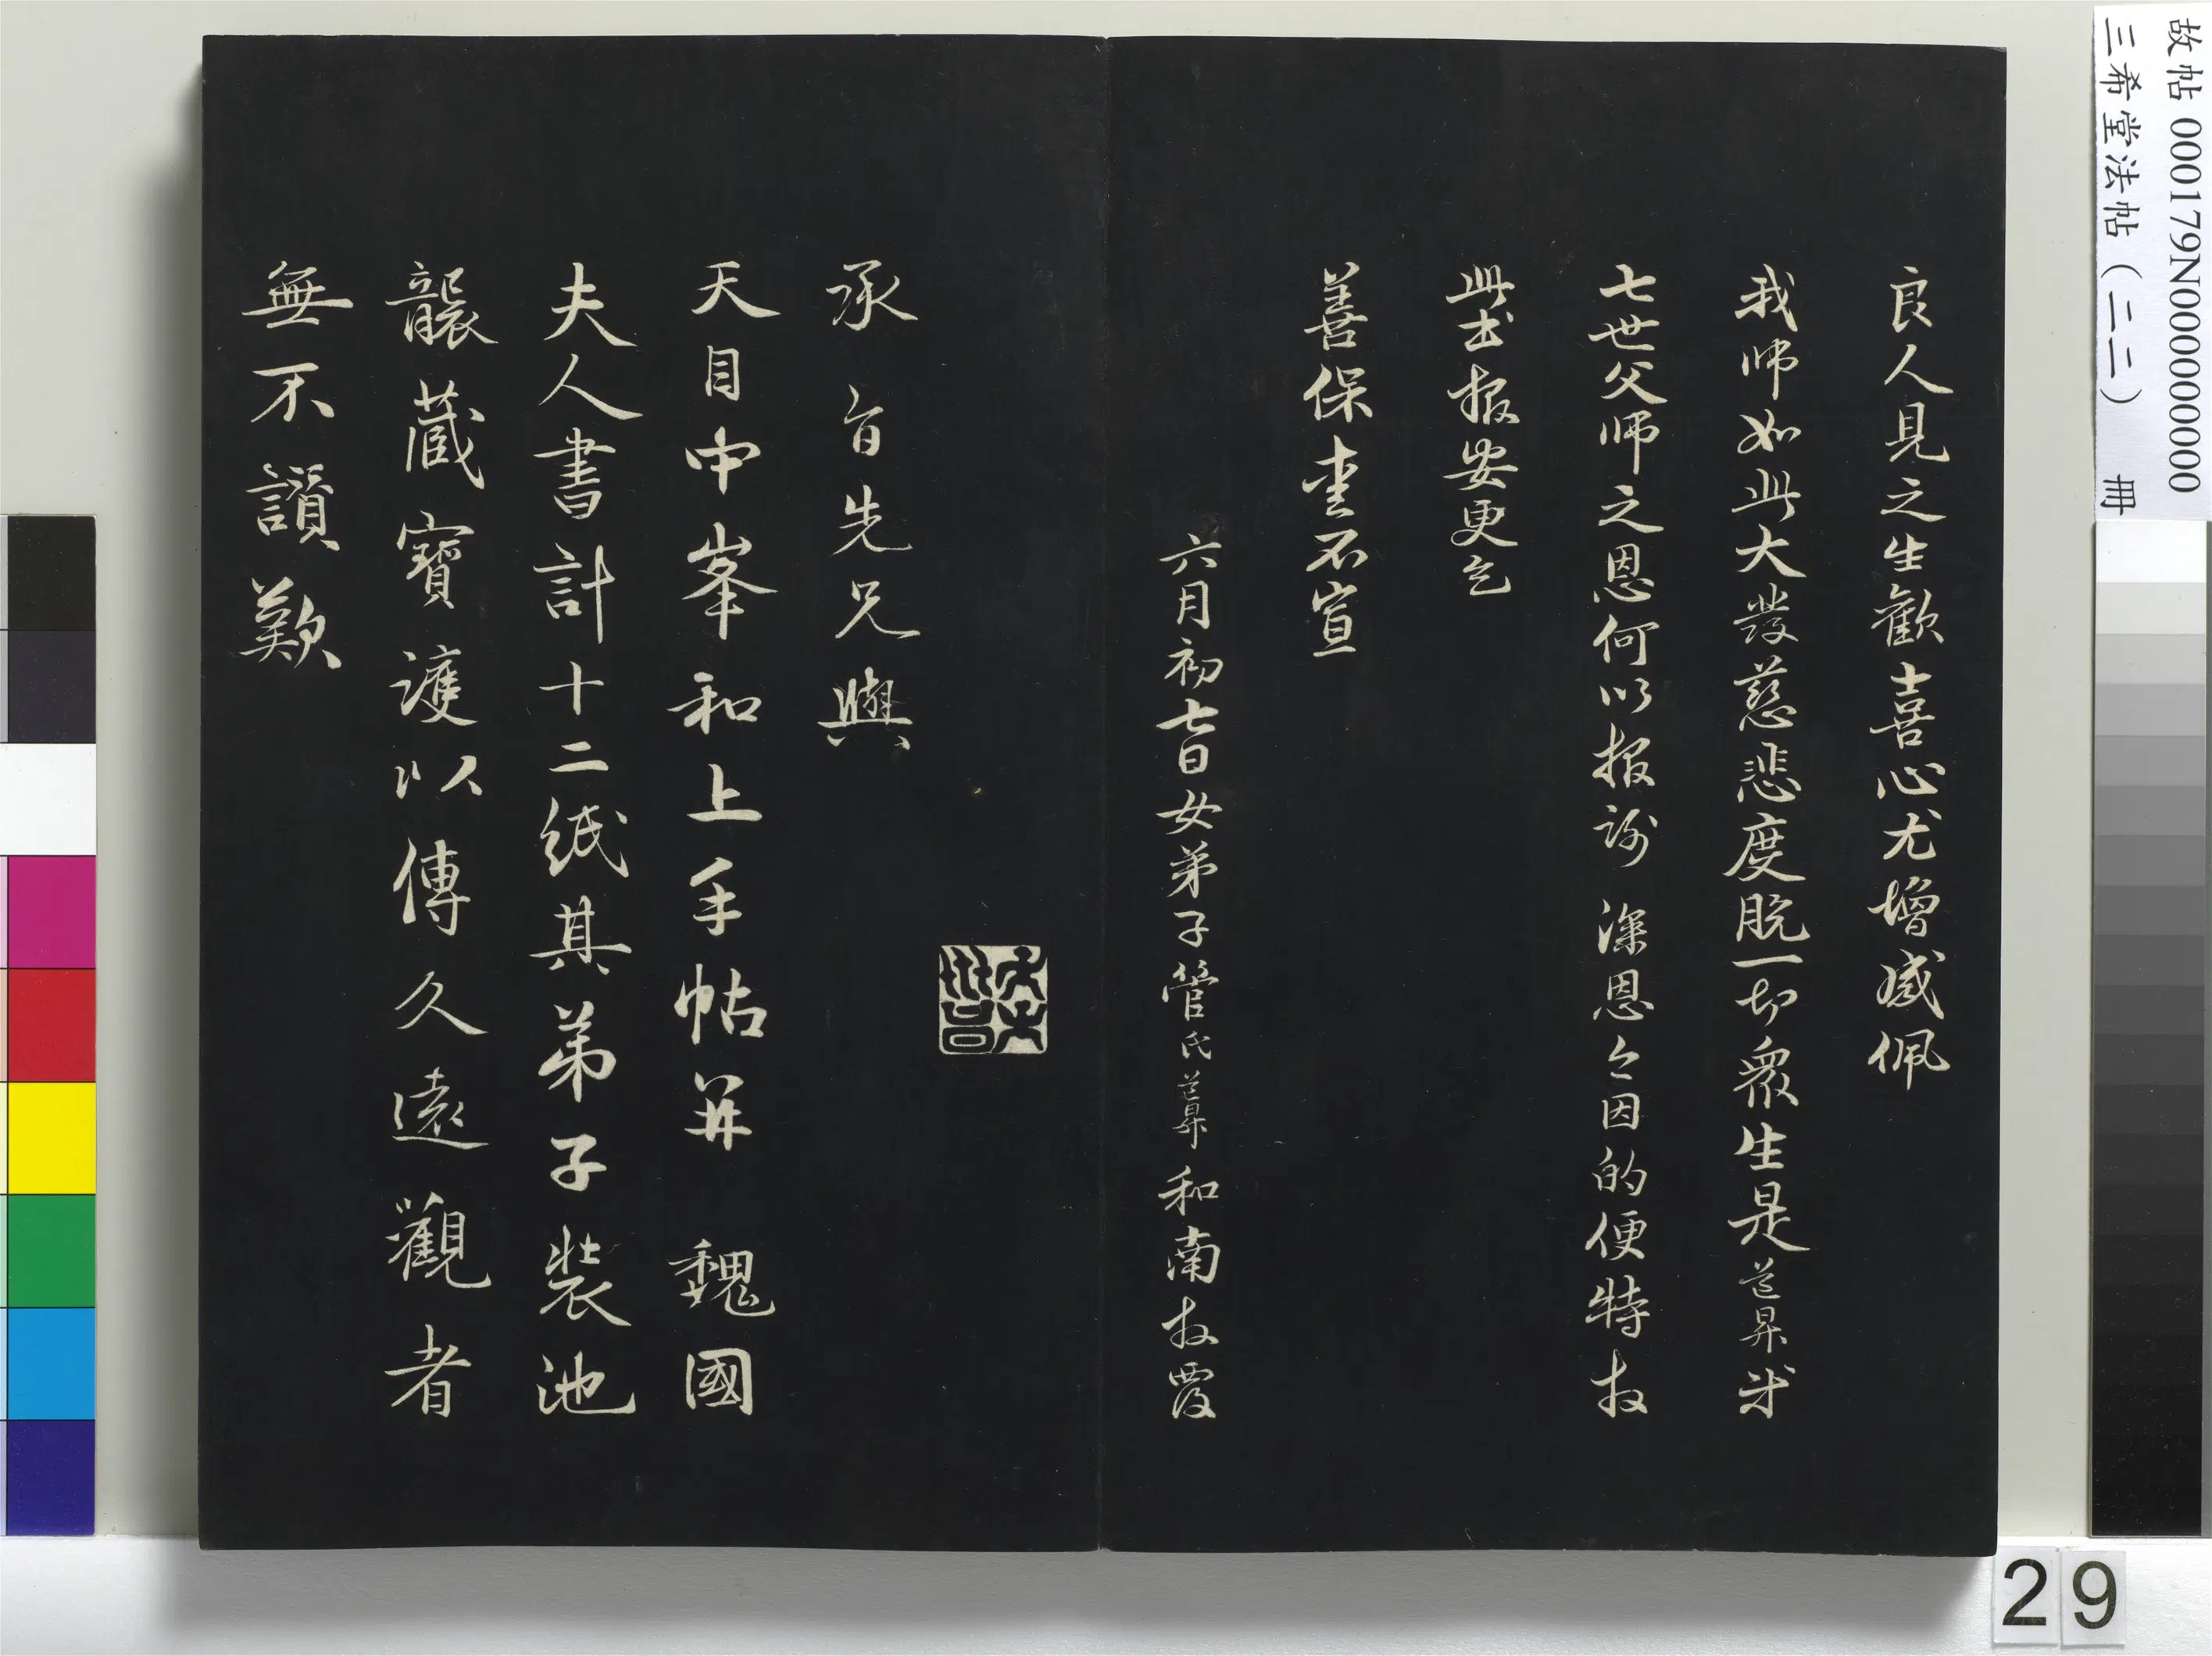 良人見之生歡喜心尤增感佩
我師如此大發慈悲度脫一切衆生是道昇米
七世父師之恩何以報謝深恩今因的便特拜
此拜報安更乞
善保重不宣
六月初七日女弟子管氏道昇和南拜覆
承旨先兄與
天目中峯和上手帖并魏國
夫人書計十二紙其弟子裝池
襲藏寶護以傳久遠觀者
無不讚歎
故帖 000179N000000000
三希堂法帖（二二） 冊
29